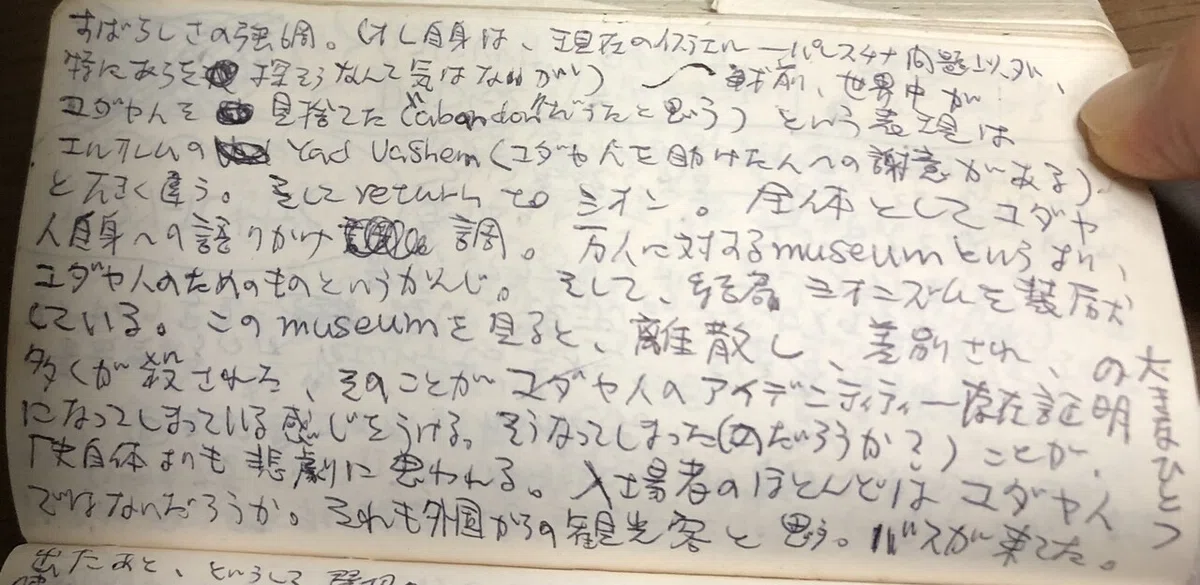 すばらしさの強調。（オレ自身は、現在のイスラエル－パレスチナ問題以外、
特にあらを 探そうなんて気はないが） 戦前、世界中が
ユダヤ人を 見捨てた（"abandon"だったと思う）という表現は
エルサレムの Yad Vashem（ユダヤ人を助けた人への謝意がある）
と大きく違う。そして return to シオン。全体としてユダヤ
人自身への語りかけ 調。万人に対するmuseumというより、
ユダヤ人のためのものというかんじ。そして、結局 シオニズムを
している。このmuseumを見ると、離散し、差別され、
多くが殺された、そのことがユダヤ人のアイデンティティー存在証明の
大きなひとつ
になってしまっている感じをうける。そうなってしまった（のだろうか？）ことが、
自体よりも悲劇に思われる。入場者のほとんどはユダヤ人
ではないだろうか。それも外国からの観光客と思う。バスが来てた。
出たあと、